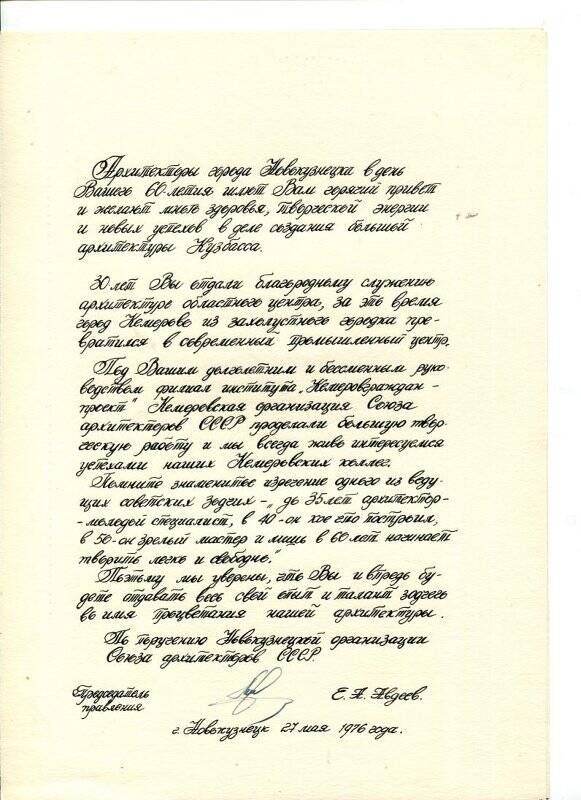 Архитекторы города Новокузнецка в день
Вашего 60-летия шлют Вам горячий привет
и желают много здоровья, творческой энергии
и новых успехов в деле создания большой
архитектуры Кузбасса.
30 лет Вы отдали благородному служению
архитектуре областного центра, за это время
город Кемерово из захолустного городка пре-
вратился в современный промышленный центр.
Под Вашим долголетним и бессменным руко-
водством филиал института „Кемеровграждан-
проект" Кемеровская организация Союза
архитекторов СССР проделали большую твор-
ческую работу и мы всегда живо интересуемся
успехами наших Кемеровских коллег.
Помните знаменитое изречение одного из веду-
щих советских зодчих - „до 35 лет архитектор-
-молодой специалист, в 40-он кое что построил,
в 50-он зрелый мастер и лишь в 60 лет начинает
творить легко и свободно."
Поэтому мы уверены, что Вы и впредь бу-
дете отдавать весь свой опыт и талант зодчего
во имя процветания нашей архитектуры.
По поручению Новокузнецкой организации
Союза архитекторов СССР.
Председатель
правления
Е. А. Авдеев.
г. Новокузнецк 27 мая 1976 года.